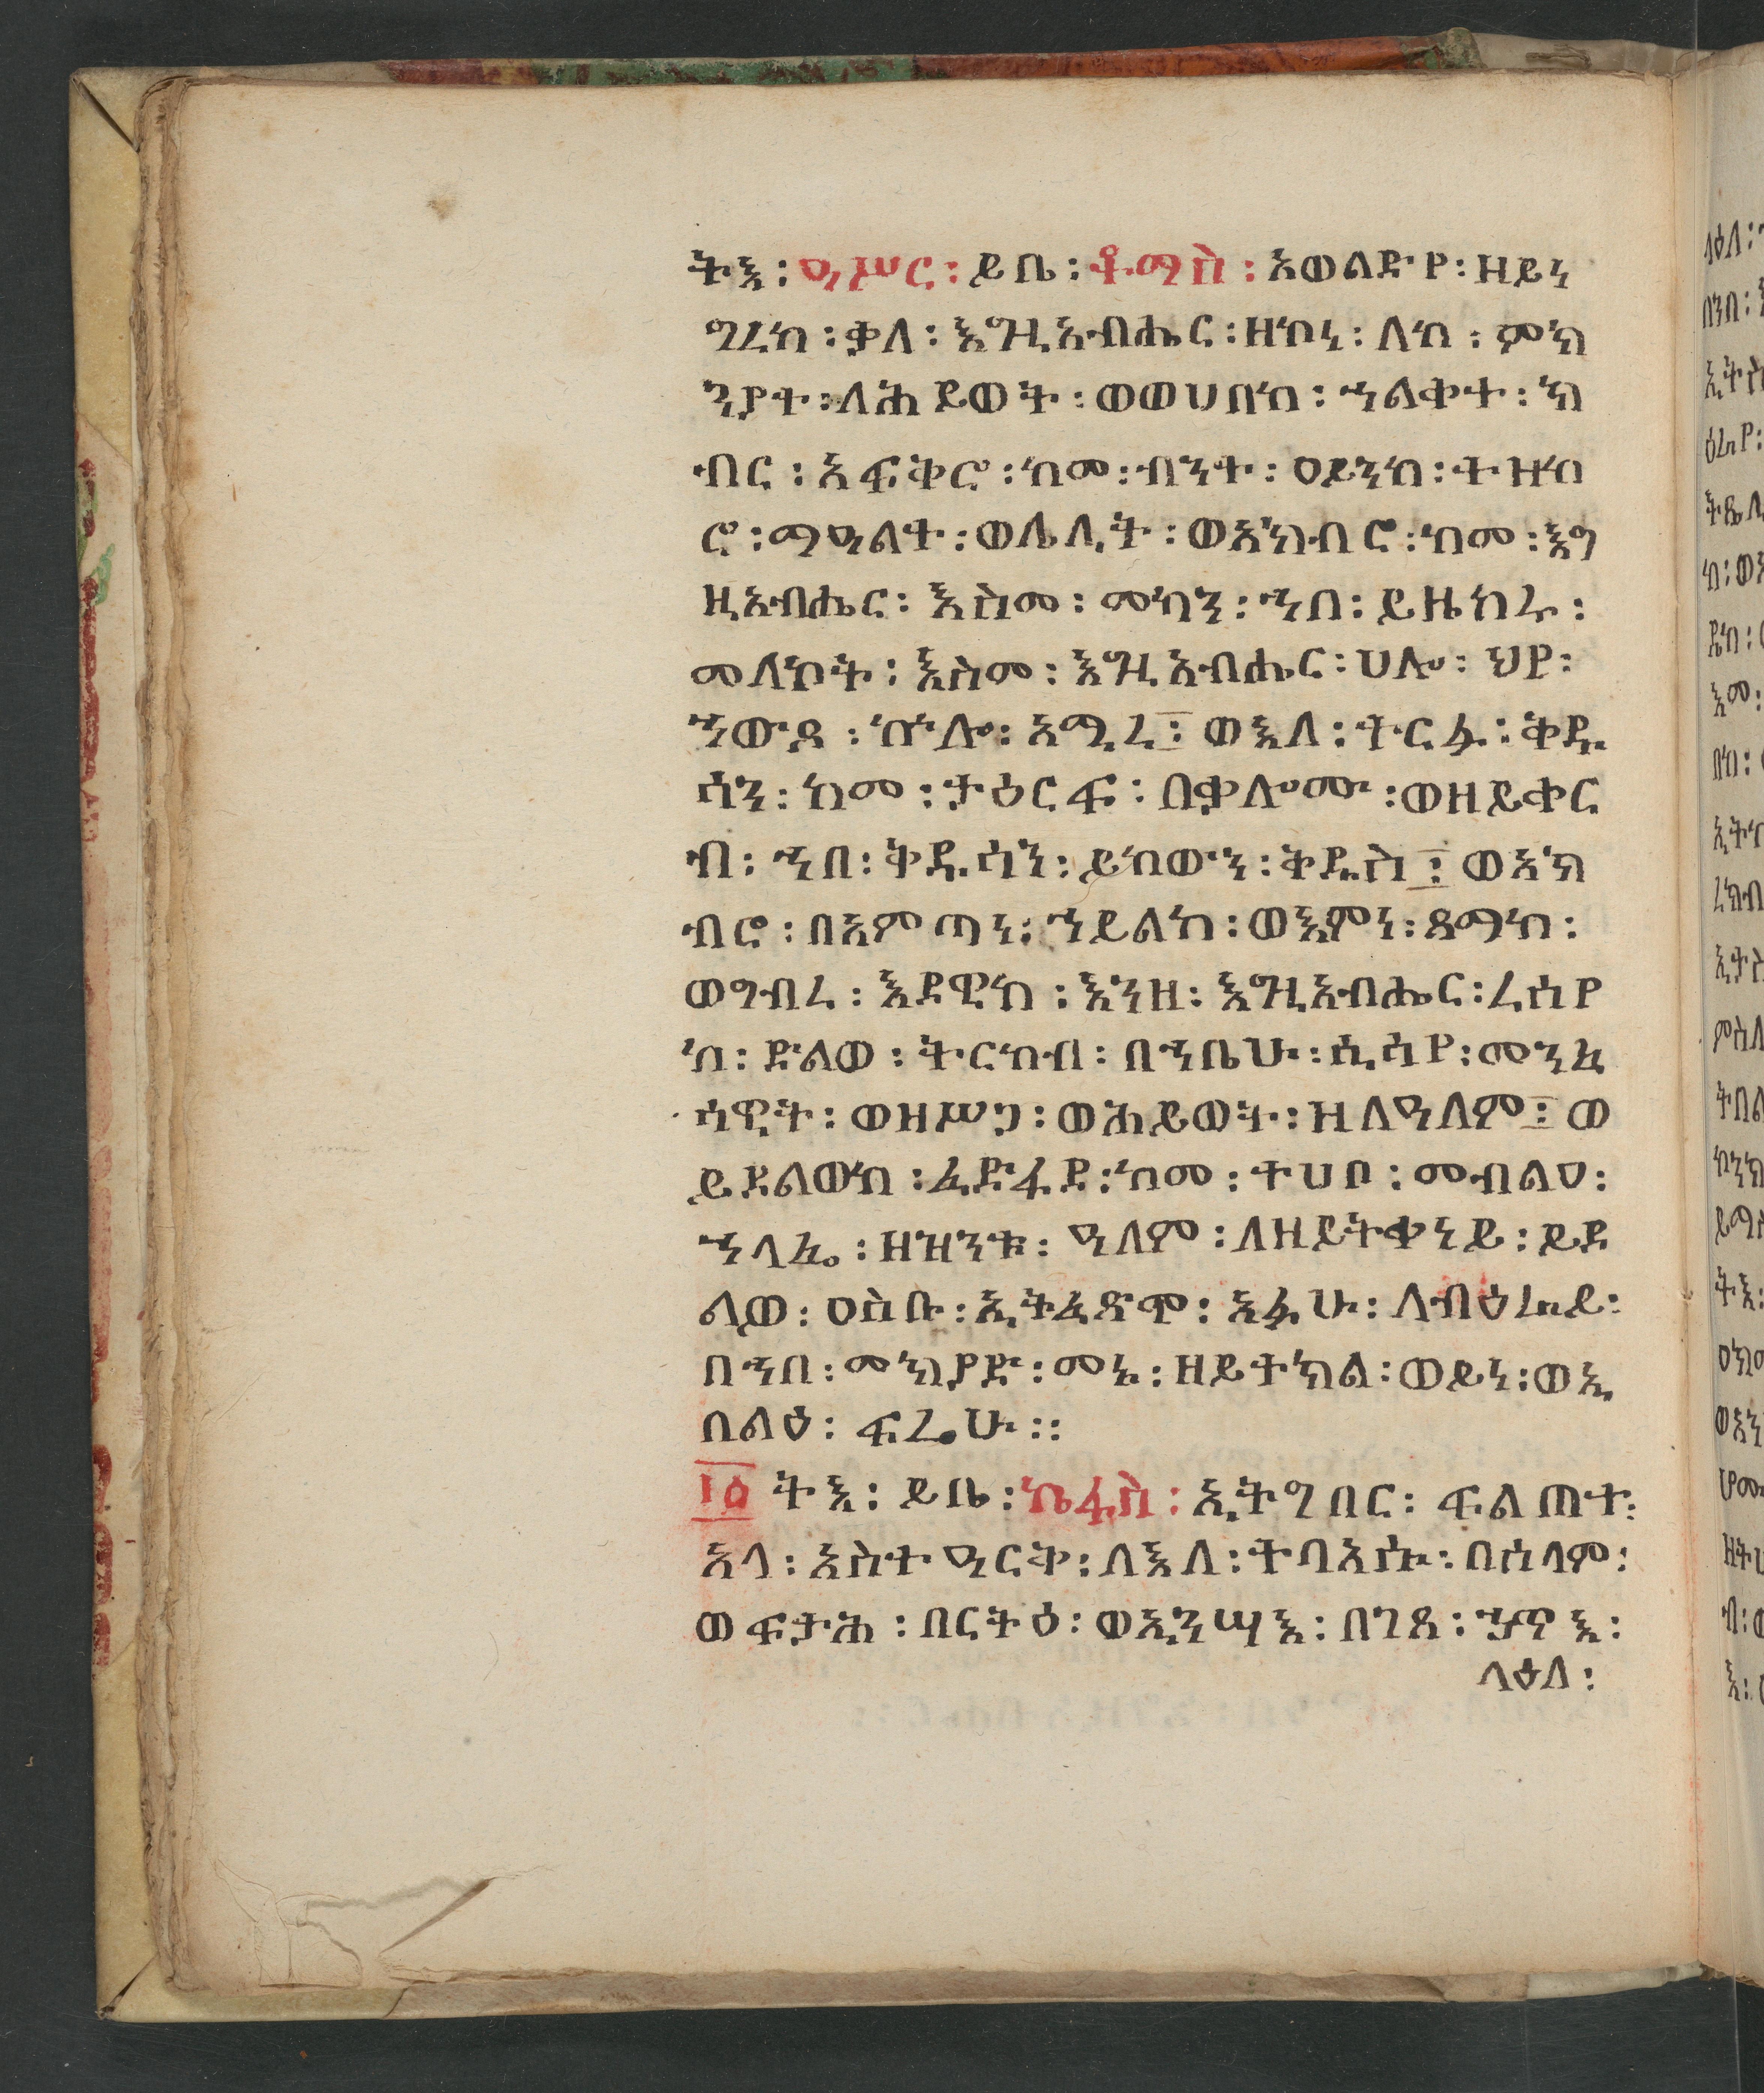 ትእ፡ዓሥር፡ይቤ፡ቶማስ፡አወልድየ፡ዘይነ
ግረከ፡ቃለ፡እግዚአብሔር፡ዘኮነ፡ለከ፡ምክ
ንያተ፡ለሕይወት፡ወወሀበከ፡ኀልቀተ፡ክ
ብር፡አፍቅሮ፡ከመ፡ብንተ፡ዐይንከ፡ተዘከ
ሮ፡ማዓልተ፡ወሌሊት፡ወአክብሮ፡ከመ፡እግ
ዚአብሔር፡እስመ፡መካን፡ኀበ፡ይዜከሩ፡
መለኮት፡እስመ፡እግዚአብሔር፡ሀሎ፡ህየ፡
ኀውዳ፡ኵሎ፡አሚረ፤ወእለ፡ተርፉ፡ቅዱ
ሳን፡ከመ፡ታዕርፍ፡በቃሎሙ፡ወዘይቀር
ብ፡ኀበ፡ቅዱሳን፡ይከውን፡ቅዱስ፤ወአክ
ብሮ፡በአምጣነ፡ኀይልከ፡ወእምነ፡ጻማከ፡
ወግብረ፡እደዊከ፡እንዘ፡እግዚአብሔር፡ረሰየ
ከ፡ድልወ፡ትርከብ፡በኀቤሁ፡ሲሳየ፡መንፈ
ሳዊት፡ወዘሥጋ፡ወሕይወት፡ዘለዓለም፤ወ
ይደልወከ፡ፈድፋደ፡ከመ፡ተሀቦ፡መብልዐ፡
ኀላፌ፡ዘዝንቱ፡ዓለም፡ለዘይትቀነይ፡ይደ
ልዎ፡ዐስቡ፡ኢትፈጽሞ፡አፉሁ፡ለብዕራይ፡
በኀበ፡መክያድ፡መኑ፡ዘይተክል፡ወይነ፡ወኢ
በልዕ፡ፍሬሁ፡፡
፲፩ ትእ፡ይቤ፡ኬፋስ፡ኢትግበር፡ፍልጠተ፡
አላ፡አስተዓርቅ፡ለእለ፡ትባአሱ፡በሰላም፡
ወፍታሕ፡በርትዕ፡ወኢንሣእ፡በገጸ፡ኃጥእ፡
ላዕለ፡